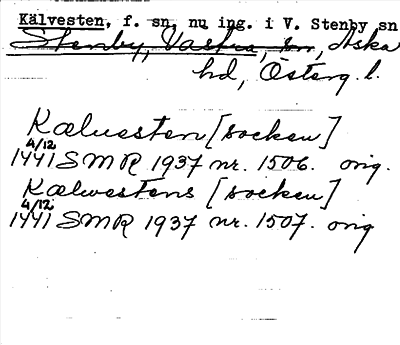 Kälvesten, f. sn, nu ing. i V. Stenby sn
Stenby, Västra, sn, Aska
hd, Österg. l.
Kæluesten [socken]
4/12
1441 SMR 1937 nr. 1506. orig.
Kælwestens [socken]
4/12
1441 SMR 1937 nr. 1507. orig